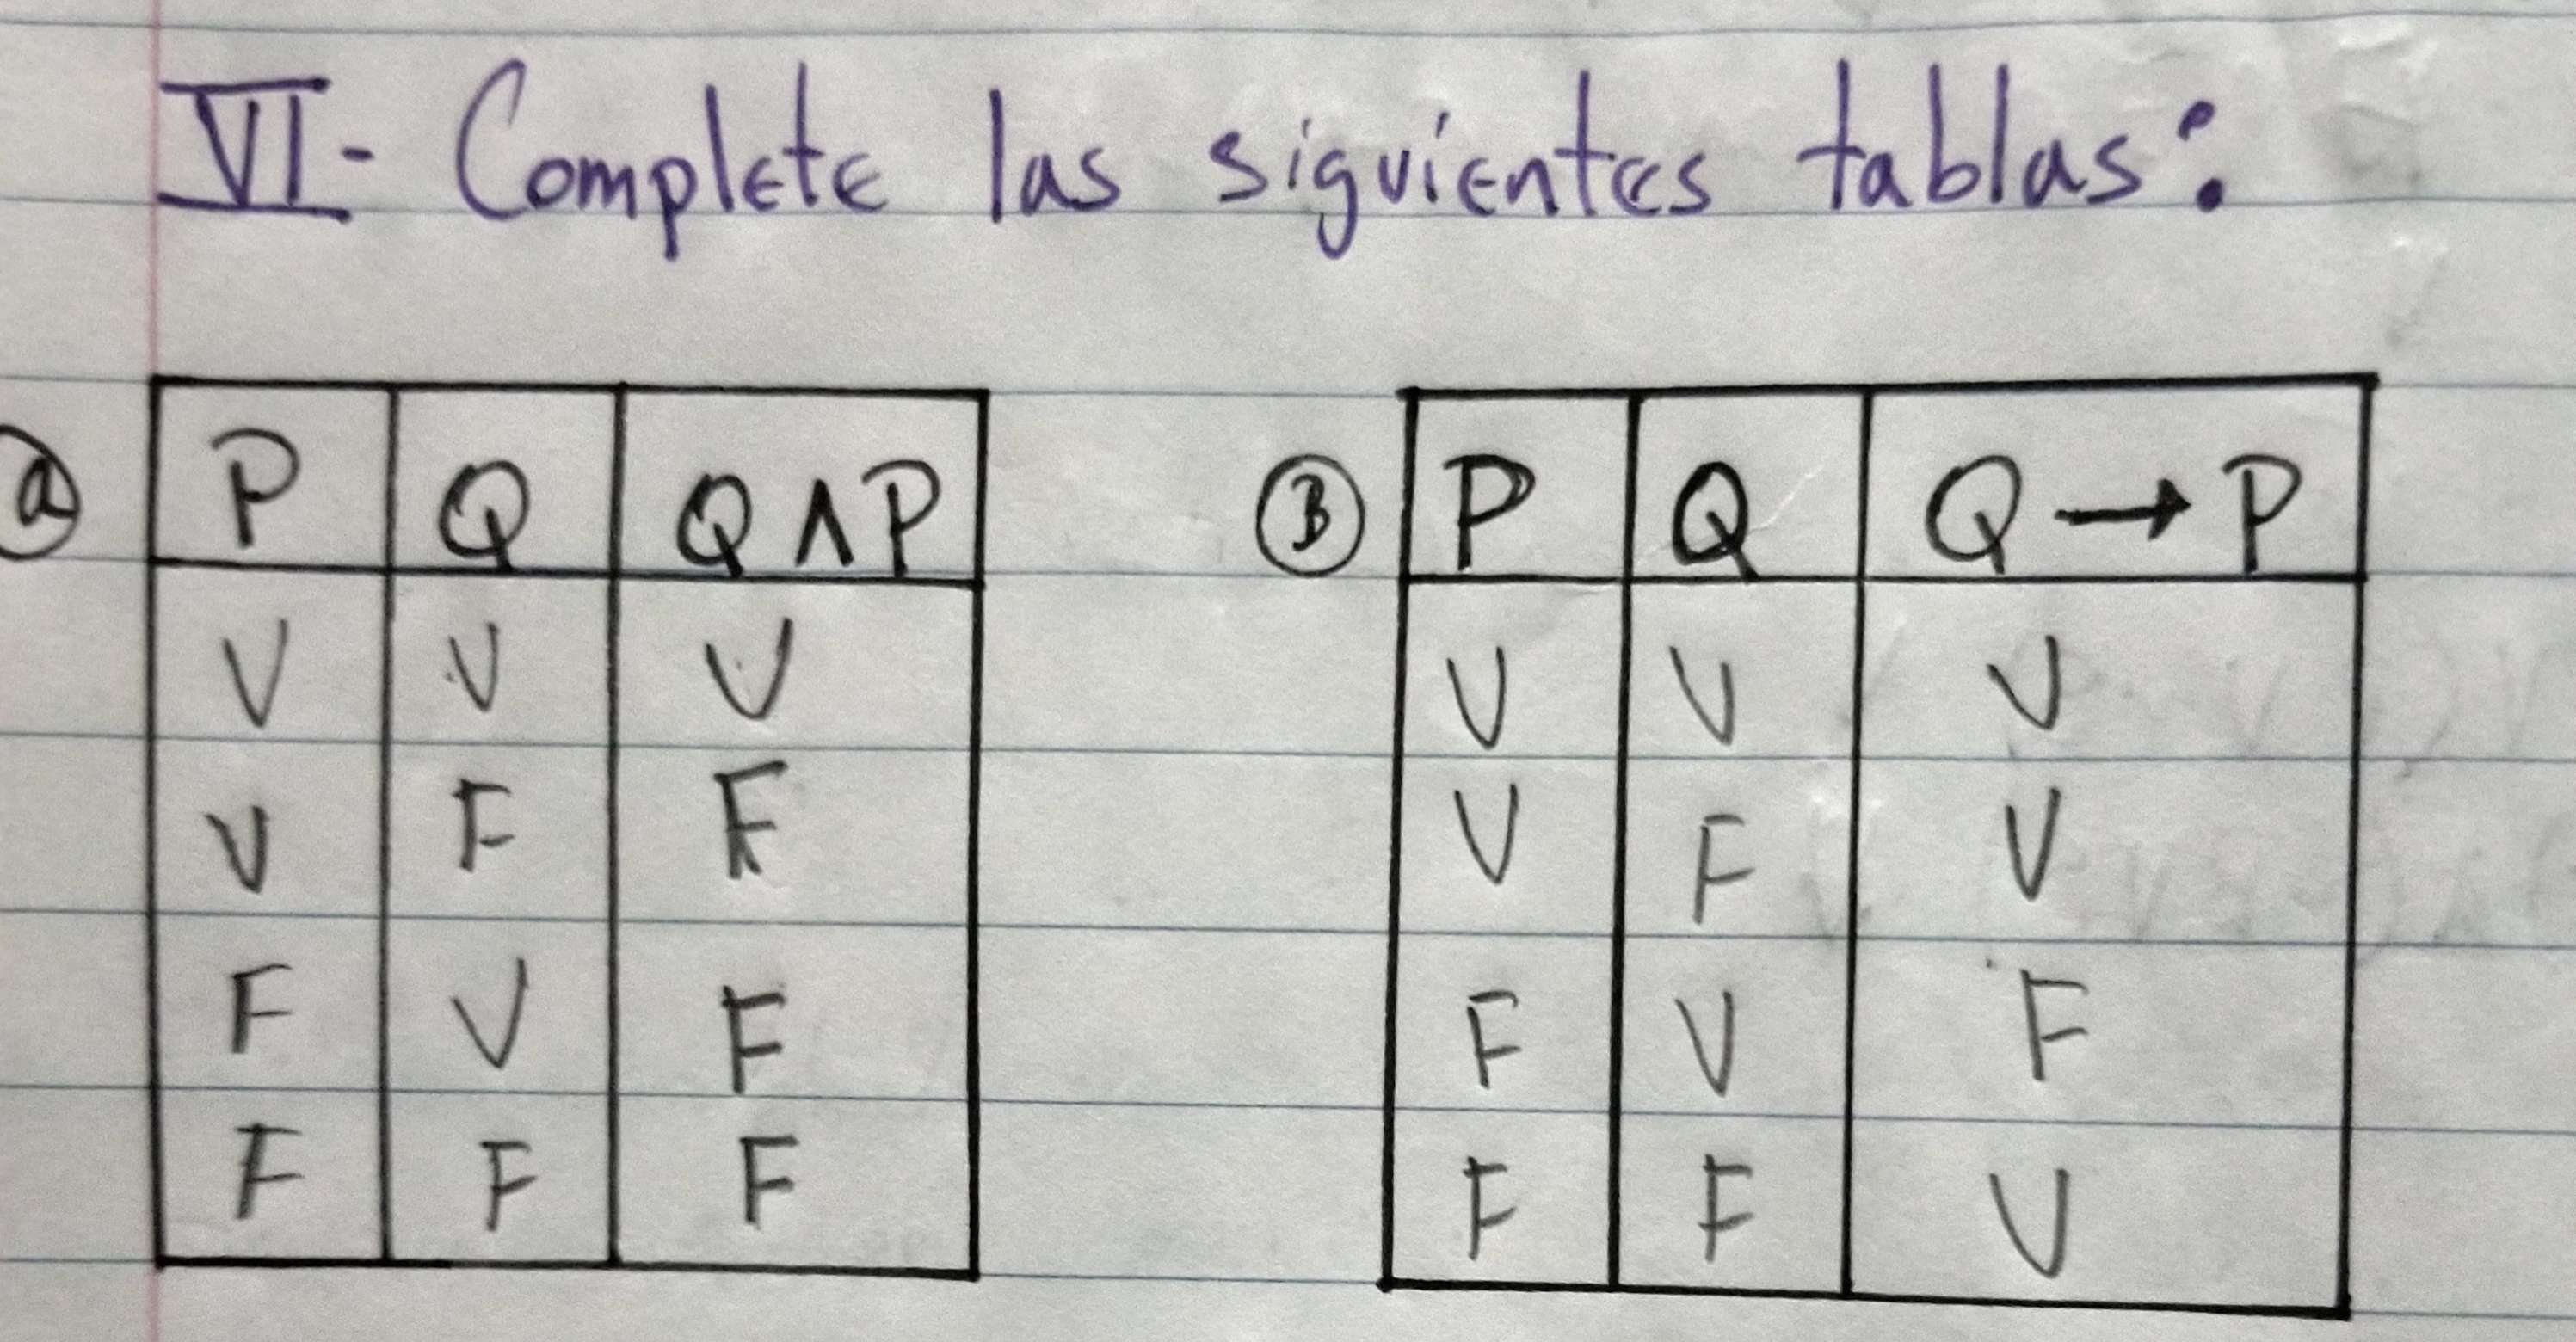 VI- Complete las siguientes tablas:
a
P Q Q ∧ P
V V V
V F F
F V F
F F F
B
P Q Q → P
V V V
V F V
F V F
F F V